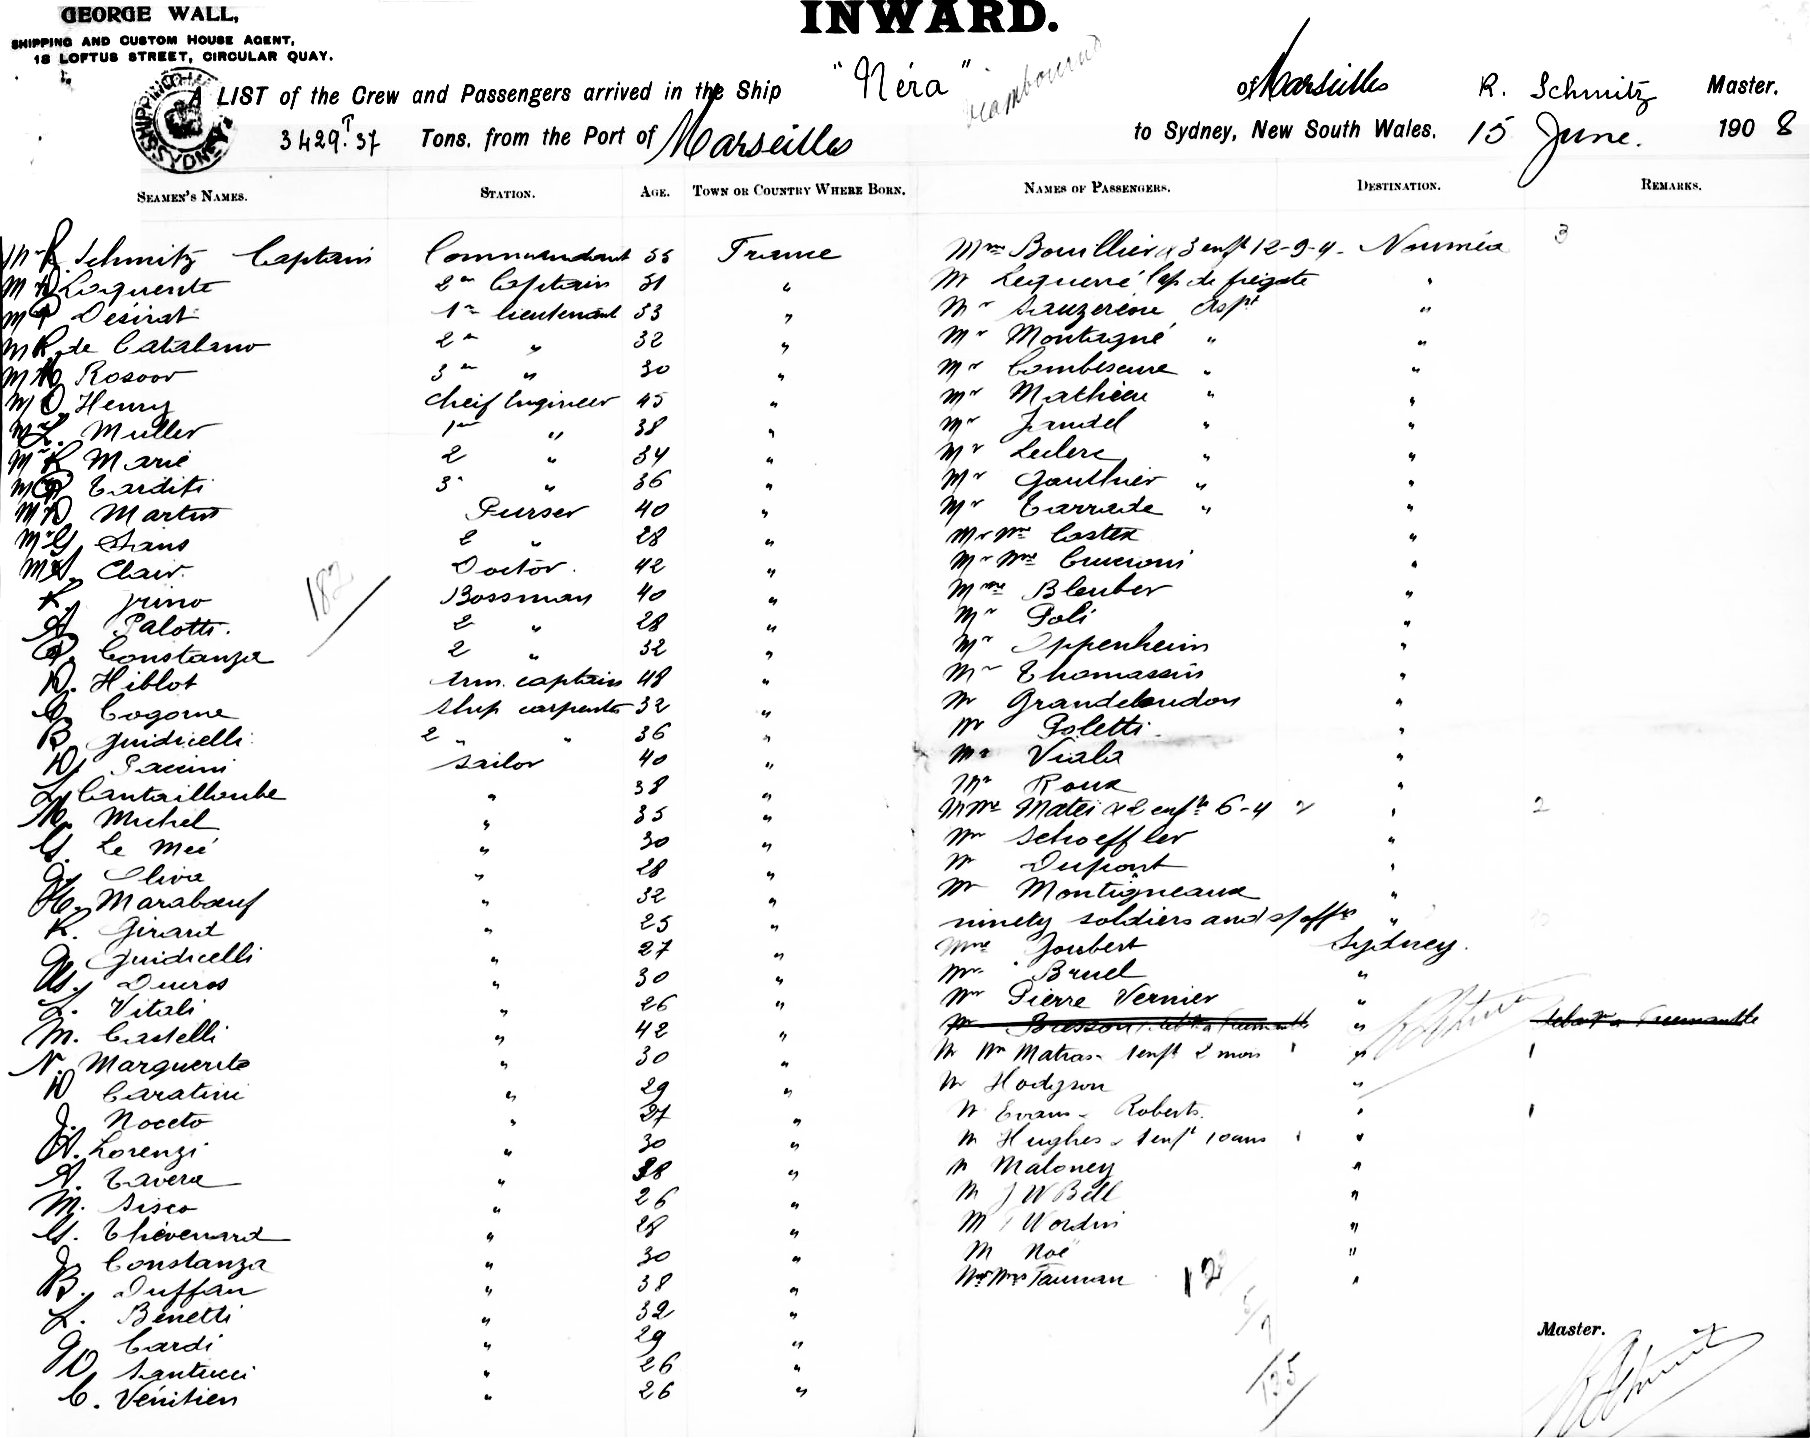 GEORGE WALL,
SHIPPING AND CUSTOM HOUSE AGENT,
18 LOFTUS STREET, CIRCULAR QUAY.
INWARD.
A LIST of the Crew and Passengers arrived in the Ship "Néra" of Marseilles R. Schmitz Master.
3429.T37 Tons, from the Port of Marseilles to Sydney, New South Wales, 15 June. 1908
SEAMEN'S NAMES. STATION. AGE. TOWN OR COUNTRY WHERE BORN. NAMES OF PASSENGERS. DESTINATION. REMARKS.
Mr R. Schmitz Captain Commandant 55 France Mme Bouillier & 3 enfts 12-9-4- Nouméa 3
2e Captain 31 " Mr Lequerré Cap de frégate "
Mr Désirat 1er lieutenant 33 " Mr "
Mr R. de Catalano 2e " 32 " Mr Montagné " "
Mr Rosoor 3e " 30 " Mr Combescure " "
Mr O. Henry Cheif Engineer 45 " Mr Mathieu " "
Mr L. Muller 1er " 38 " Mr Jandel " "
Mr R Marie 2 " 34 " Mr Leclerc " "
Mr Tarditi 3e " 36 " Mr Gauthier " "
Mr D Martin Purser 40 " Mr Tarrade " "
Mr G. 2 " 28 " Mr Mme Castex "
Mr A. Clair. Doctor. 42 " Mr Mme "
R. Bossman 40 " Mme Bleuber "
A. Palotti. 2 " 28 " Mr Poli "
P. Constanza 2 " 32 " Mr Oppenheim "
D. Hiblot arm. captain 48 " Mr Thomassin "
Cogorne Ship carpenter 32 " Mr "
B Guidicelli 2 " " 36 " Mr Poletti "
D. Paccini Sailor 40 " Mr Viala "
L. " 38 " Mr Roux "
M. Michel " 35 " M Mme Matei & 2 enfts 6-4 " " 2
G. " 30 " Mr Schoeffler "
Oliva " 28 " Mr Dupont "
H. Maraboeuf " 32 " Mr Montigneaux "
R. Girard " 25 " ninety soldiers and "
Guidicelli " 27 " Mme Joubert Sydney.
" 30 " Mr Bruel "
L. Vitali " 26 " Mr Pierre Vernier "
M. Castelli " 42 " Mr Bresson débt à Freemantle " débt à Freemantle
N. Marguerite " 30 " M Mme Matras 1 enft 2 mois 1 " 1
D Caratini " 29 " M Hodgson "
J. Noceto " 27 " M Evans - Roberts. " 1
A. Lorenzi " 30 " M Hughes & 1 enft 10 ans 1 "
A. Tavera " 38 " M Maloney "
M. Sisco " 26 " M J W Bell "
G. Thévenard " 28 " M "
J. Constanza " 30 " M Noé "
B. Duffau " 38 " Mr Mme "
L. Benetti " 32 "
Cardi " 29 "
D. Santucci " 26 "
C. Vénitien " 26 "
182
12
135
Master.
R Schmitz